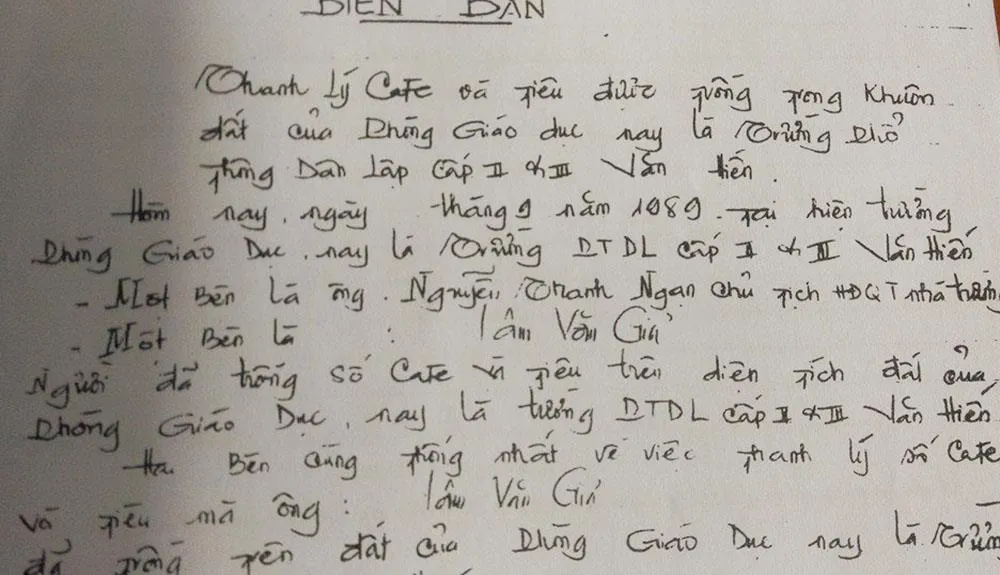 BIÊN BẢN
Thanh lý Cafe và tiêu được trồng trong khuôn
đất của Phòng Giáo dục nay là Trường Phổ
thông Dân lập cấp II & III Văn Hiến.
Hôm nay, ngày tháng 9 năm 1989. Tại hiện trường
Phòng Giáo Dục, nay là Trường PTDL cấp II & III Văn Hiến
- Một Bên là ông. Nguyễn Thanh Ngạn chủ tịch HĐQT nhà trường
- Một Bên là : Lâm Văn
Người đã trồng số Cafe và tiêu trên diện tích đất của
Phòng Giáo Dục, nay là trường PTDL cấp II & III Văn Hiến.
Hai Bên cùng thống nhất về việc thanh lý số Cafe
và tiêu mà ông : Lâm Văn
đã trồng trên đất của Phòng Giáo Dục nay là Trường